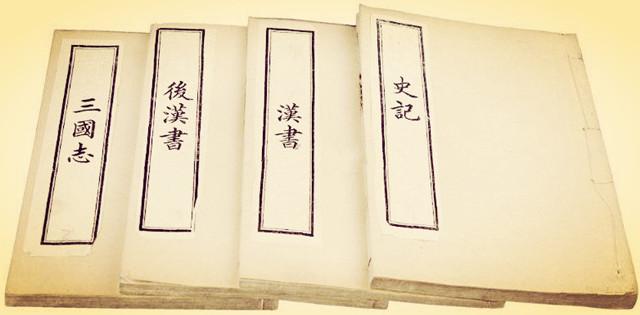 史記
漢書
後漢書
三國志